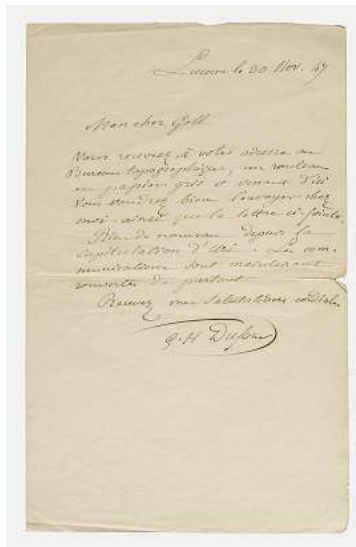 Lucerne le 30 Nov. 47
Mon cher Goll
Vous recevrez à votre adresse au
Bureau topographique, un rouleau
en papier gris et venant d'ici
Vous voudrez bien l'envoyer chez
moi ainsi que la lettre ci-jointe.
Rien de nouveau depuis la
capitulation d'Uri. Les com-
munications sont maintenant
rouvertes de partout
Recevez mes salutations cordiales
G. H Dufour